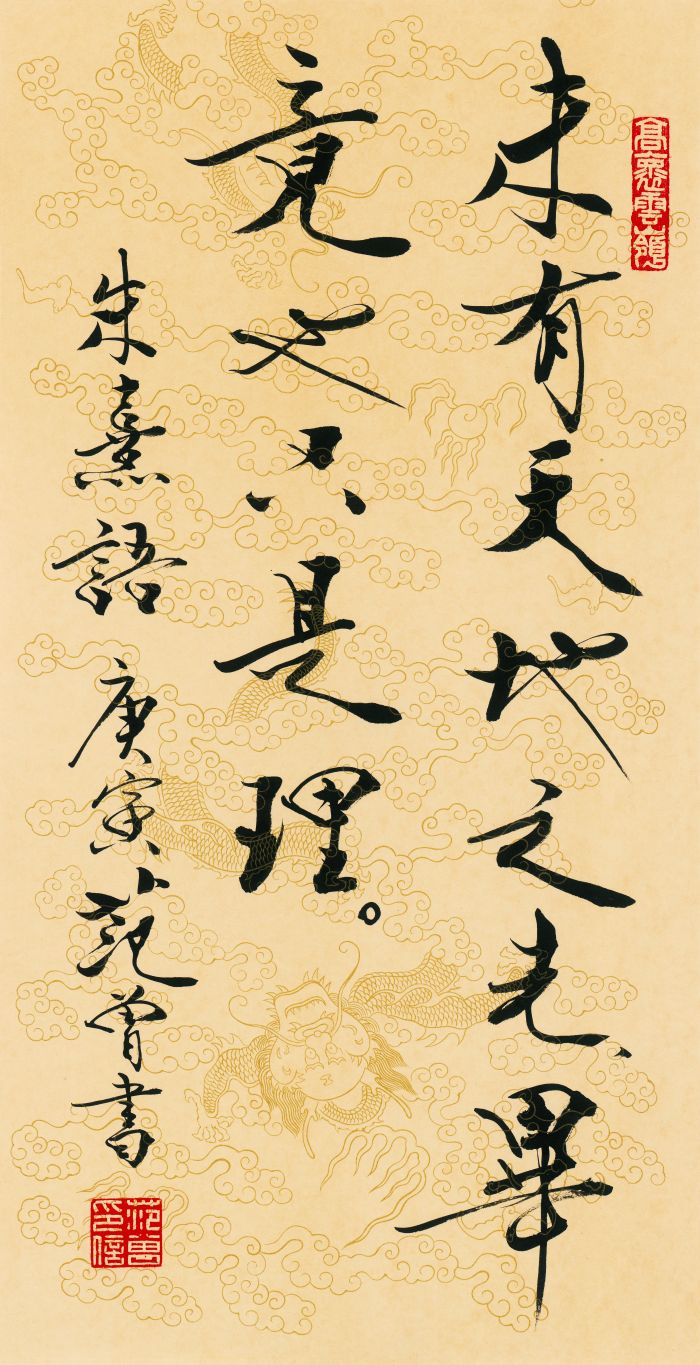 高雲嶺
未有天地之先、畢
竟也只是理。
朱熹語 庚寅 范曾書
范曾
印信